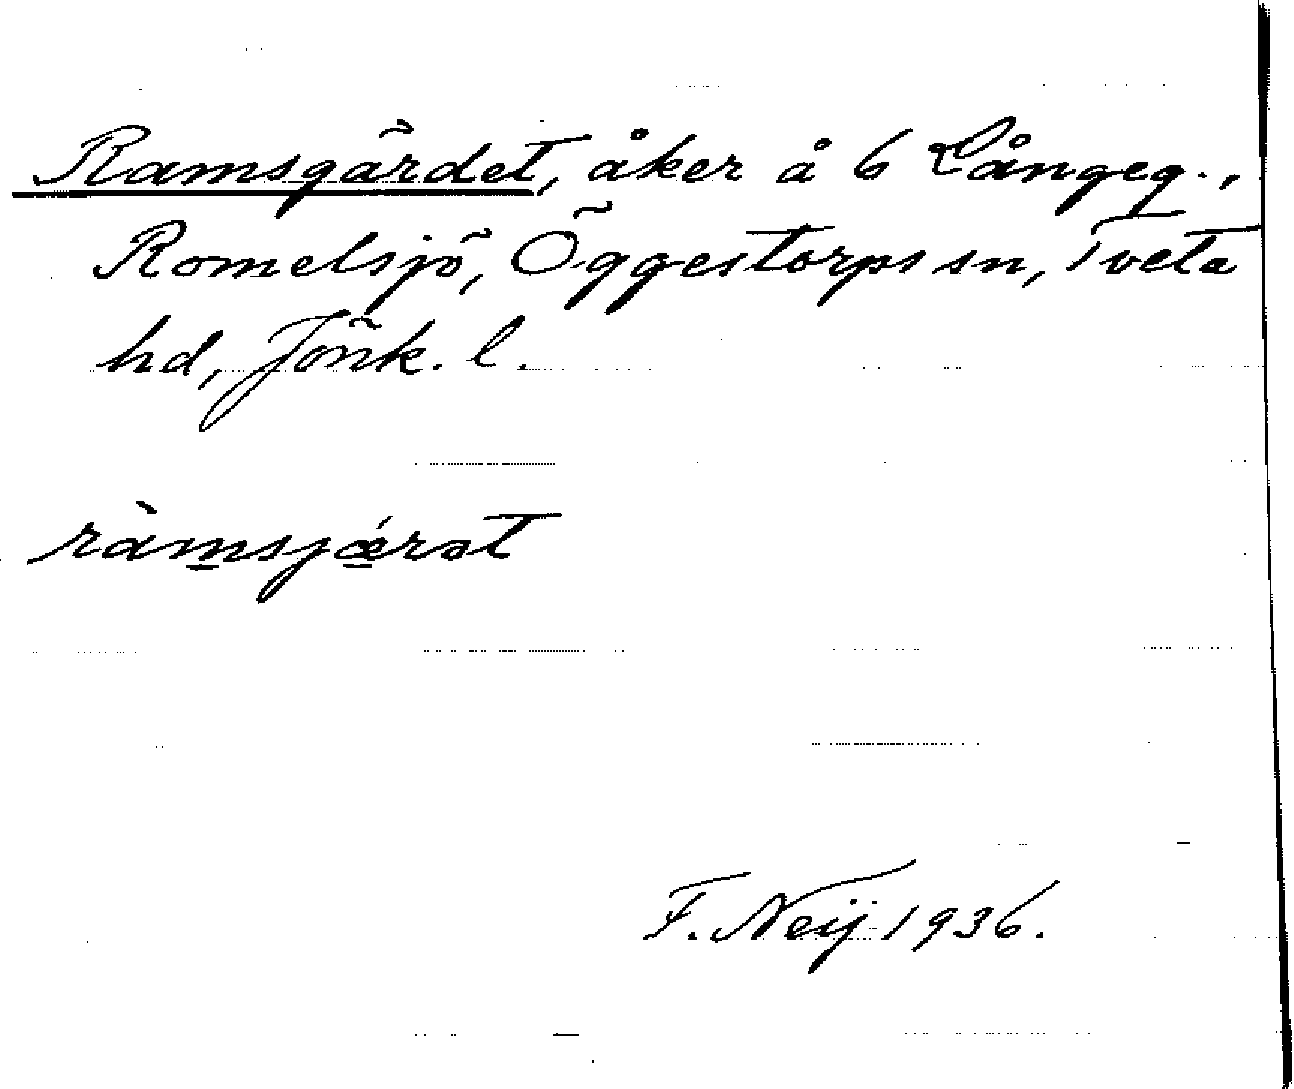 Ramsgärdet, åker å 6 Långeg.,
Romelsjö, Öggestorps sn, Tveta
hd, Jönk. l.
ràmsjǽrət
F. Neij 1936.